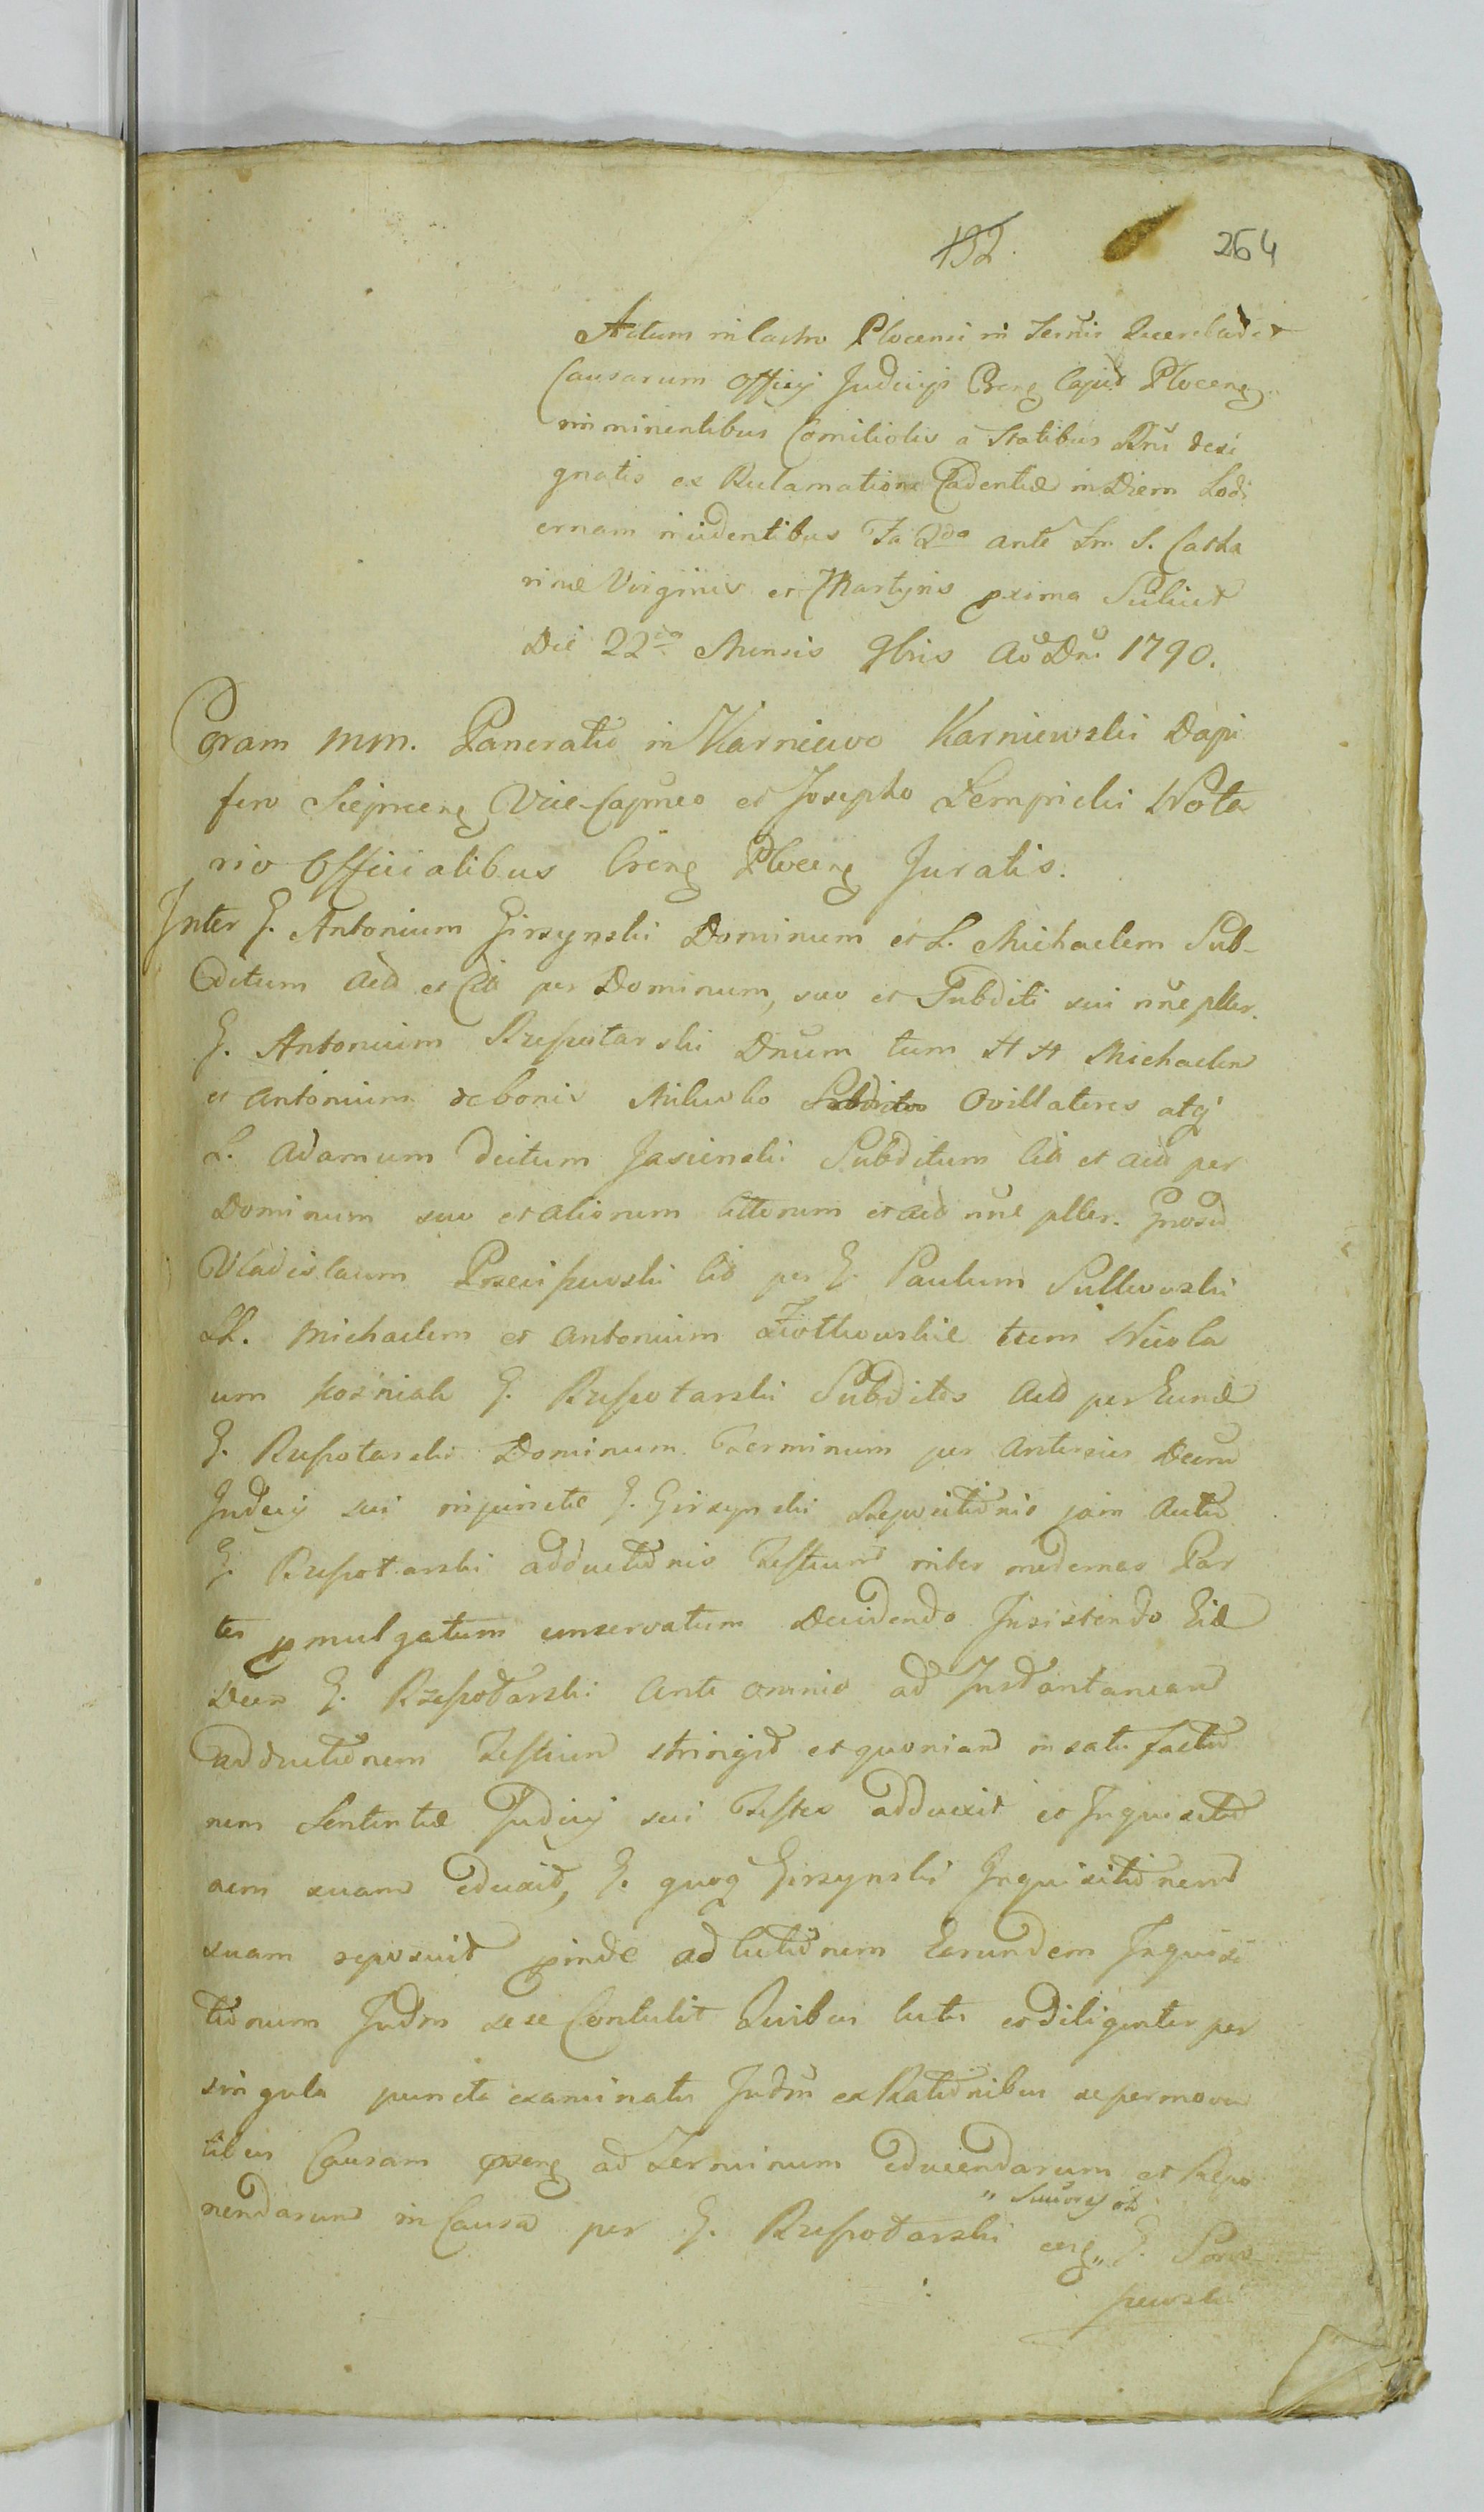 192.
264
Actum in Castro Plocensi in Ternis Querelar et
Causarum Officij Judicijs Crens Capid Plocens
imminentibus Comitiolis a Statibus Rni desi
gnatis ex Reclamatione Cadentiæ in Diem hodi
ernam incidentibus Fa 2da ante Fm S. Catha
rinæ Virginis et Martyris pxima Scilicet
Die 22da Mensis 9bris Ao Dni 1790.
Coram MM. Pancratio in Karniewo Karniewski Dapi
fero Sieprcens Vice-Capneo et Josepho Dempnicki Nota
rio Officialibus Crens Plocens Juratis.
Inter G. Antonium Girzynski Dominum et L. Michaelem Sub-
ditum Act et Cit per Dominum, suo et Subditi sui nne pller.
G. Antonium Rzeszotarski Dnum tum HH Michaelem
et Antonium de bonis Milewko Subditos Ovillatores atq
L. Adamum dictum Jasienski Subditum Cit et act per
Dominum suo et aliorum Cittorum et act nne pller. Gnosd
Vladislaum Przeciszewski Cit per G. Paulum Sulkowski
LL. Michaelem et Antonium Ziołkowskie tum Nicola
um Kozniak G. Rzeszotarski Subditos Act per Eund
G. Rzeszotarski Dominum Terminum per anterius Decrm
Judicij sui injunctæ G. Girzynski Repositionis jam Actæ
G. Rzeszotarski adductionis Testium inter modernas Par
tes pmulgatum conservatum Decidendo Insistendo Eid
Decr G. Rzeszotarski Ante omnia ad Instantaneam
adductionem Testium stringit et quoniam in satis factio
nem Sententiæ Judicij sui Testes adduxit et Inquisitio
nem suam eduxit, G. quoq Girzynski Inquisitionem
suam reposuit pinde ad lectionem Earundem Inquisi
tionum Judm sese Contulit Quibus lectis et diligenter per
singula puncta examinatis Judm ex Rationibus se permoven
tibus Causam psens ad Terminum educendarum et Repo
nendarum in Causa per G. Rzeszotarski
cers G.